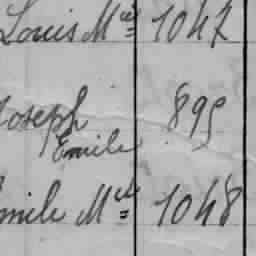 Louis Mie 1047
Joseph 899
Emile
Emile Mel 1048